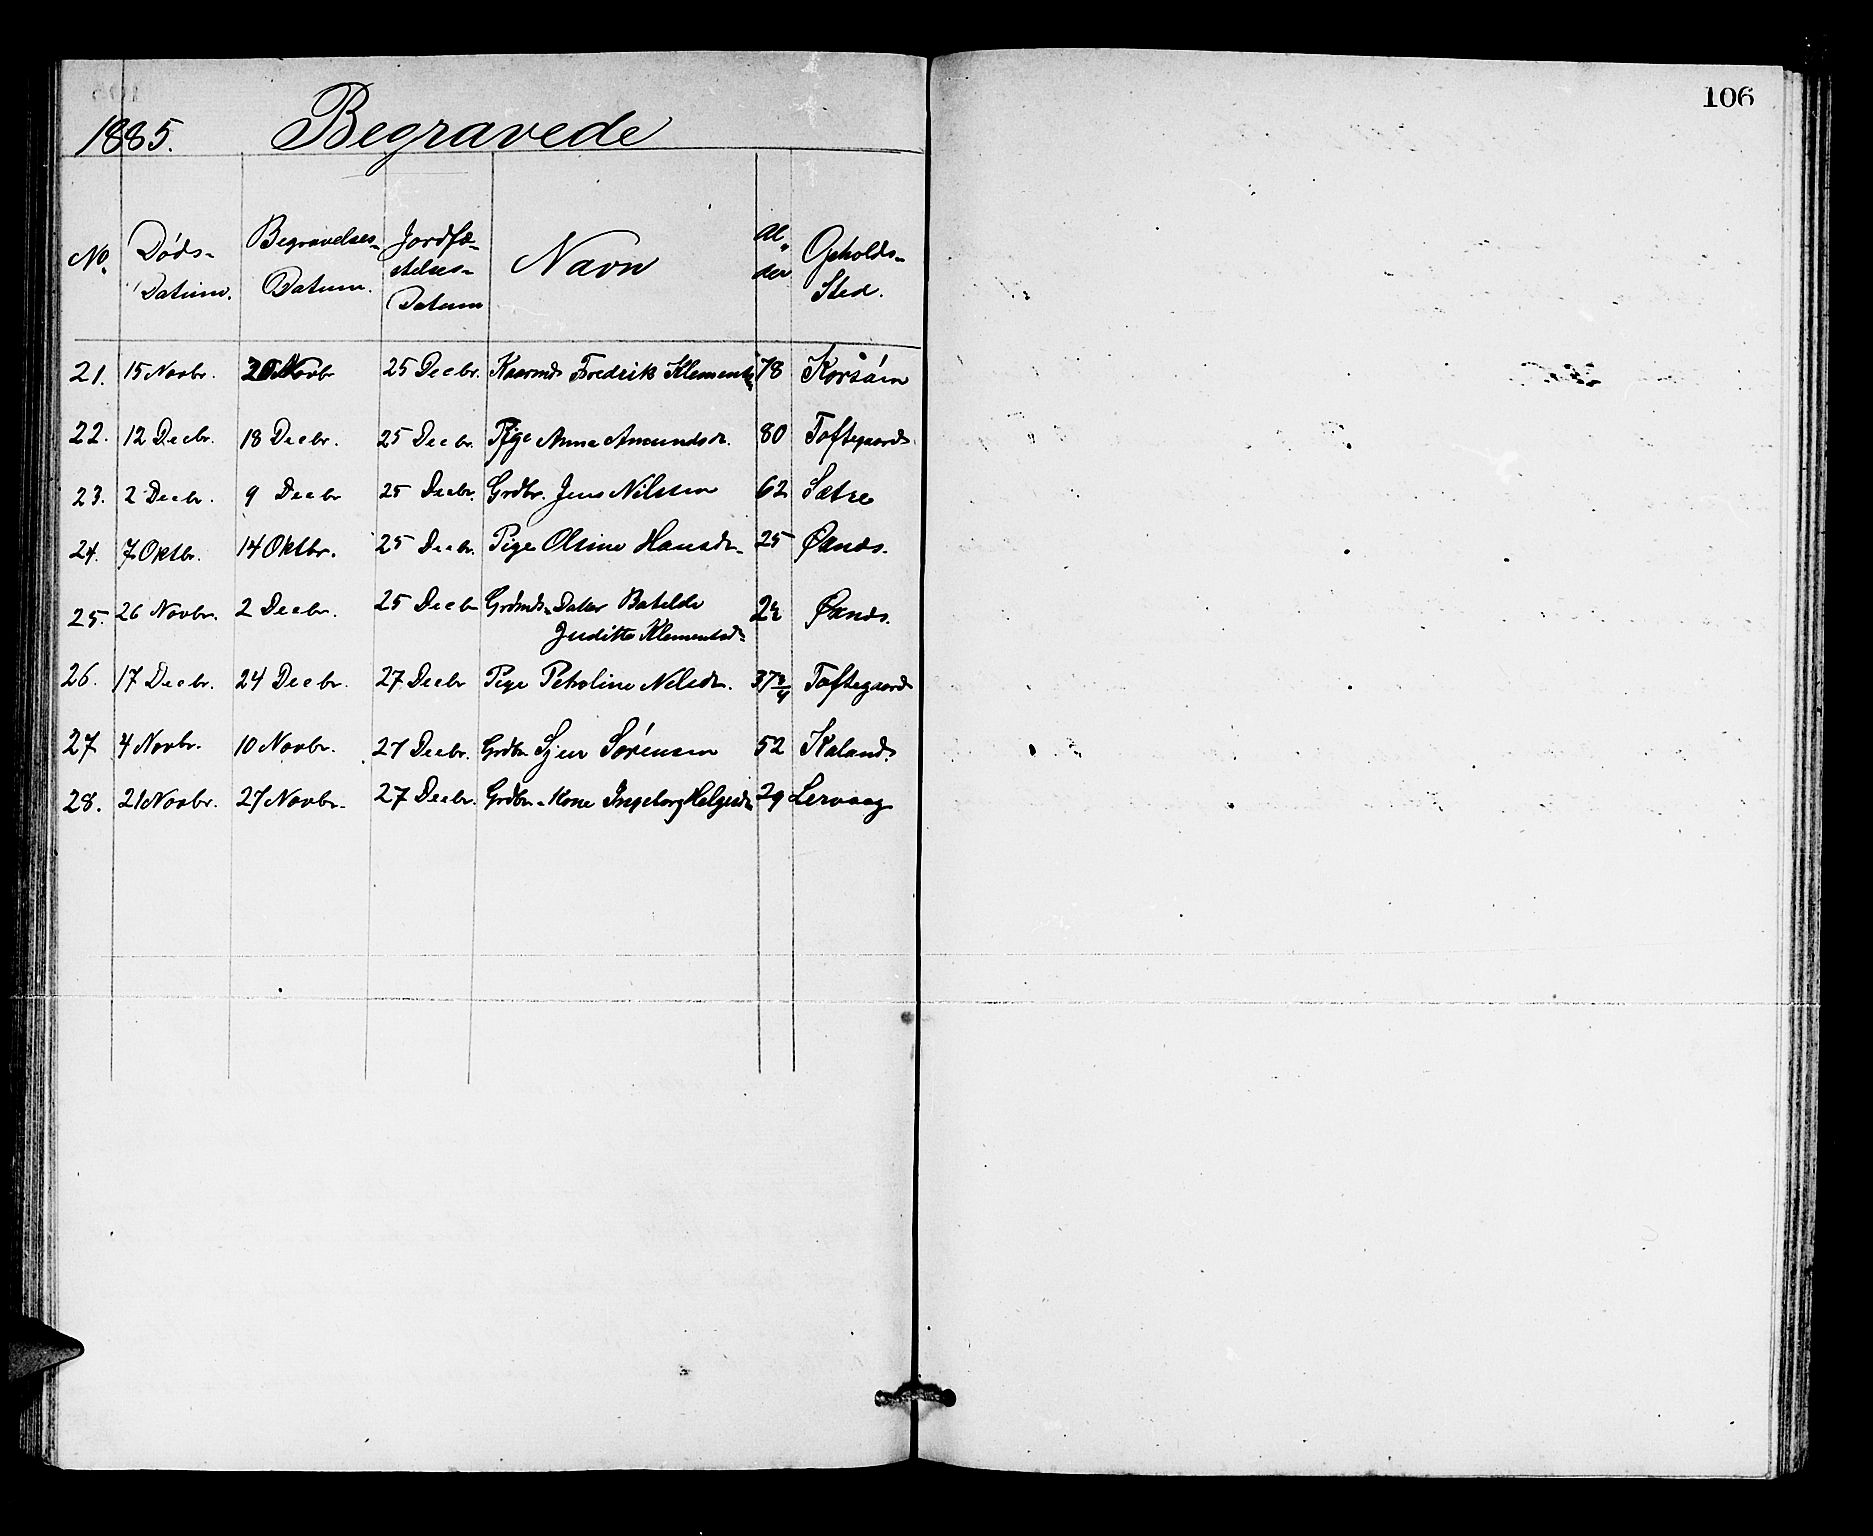 106
1885. Begravede
No. Døds- Datum. Begravelses- Datum. Jordfæ- stelses- Datum Navn Al- der Opholds- Sted.
21. 15 Novbr. 20 Novbr 25 Decbr. Kaarmd Fredrik Klements 78
22. 12 Decbr. 18 Decbr. 25 Decbr. Pige Anna Amundsdr. 80 Toftegaard
23. 2 Decbr. 9 Decbr 25 Decbr. Grdbr. Jens Nilssen 62 Sætre
24. 7 Oktbr. 14 Oktbr. 25 Decbr. Pige Olsine Hansdr. 25
25. 26 Novbr. 2 Decbr. 25 Decb Grdmds. Datter Batilde
Juditte Klementsdr
26. 17 Decbr. 24 Decbr. 27 Decbr Pige Petroline Nilsdr. 37 3/4 Toftegaard
27 4 Novbr. 10 Novbr. 27 Decbr. Grdbr Sjur Sørensen 52 Kaland
28. 21 Novbr. 27 Novbr. 27 Decbr. Grdbr. Kone Ingeborg Helgesdr 29 Lervaag